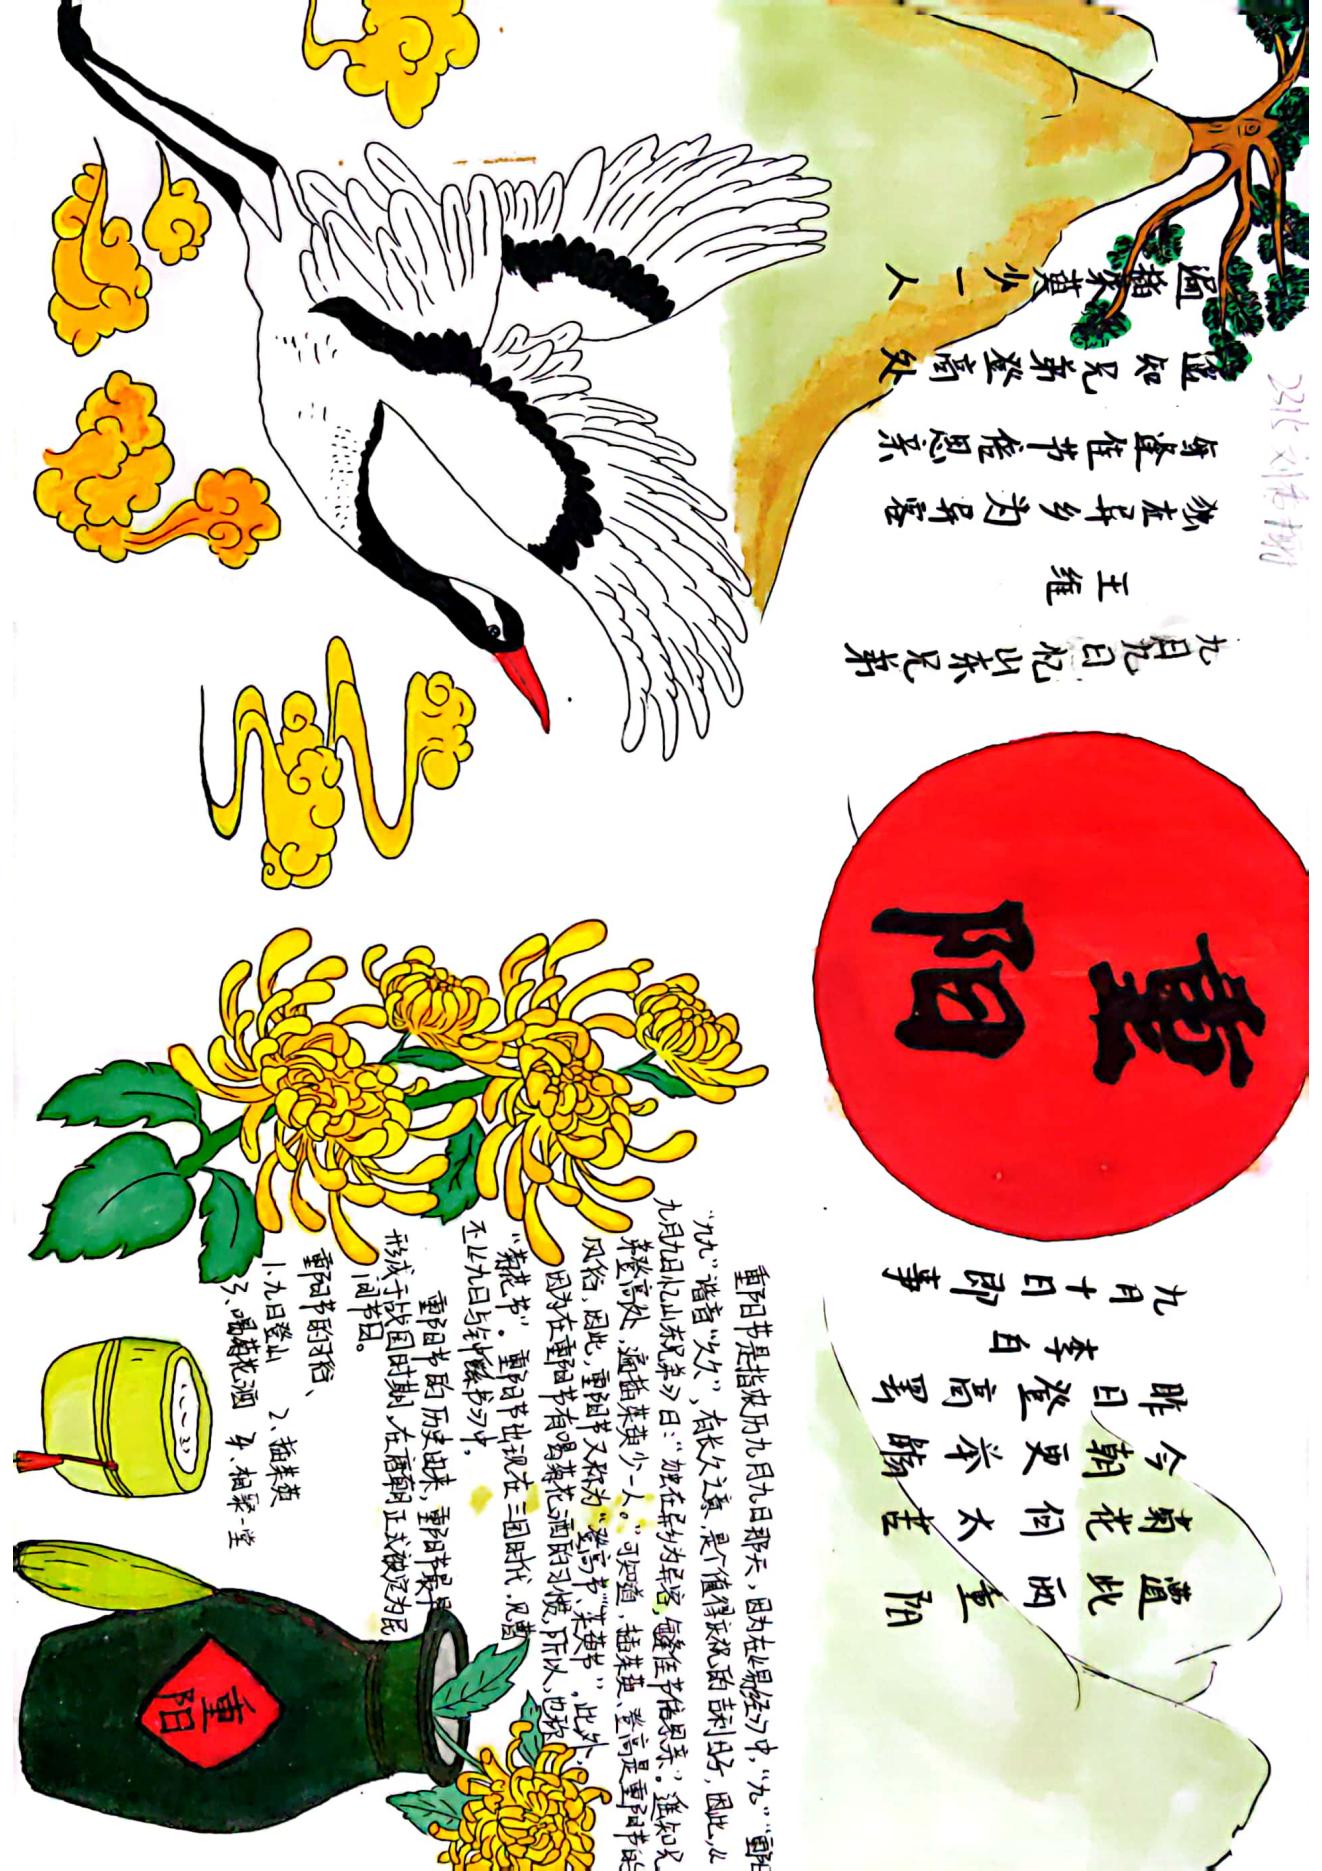 九月九日忆山东兄弟
王维
独在异乡为异客
每逢佳节倍思亲
遥知兄弟登高处
遍插茱萸少一人
重阳
九月十日即事
李白
昨日登高罢
今朝更举觞
菊花何太苦
遭此两重阳
重阳节是指农历九月九日那天，因为在《易经》中，“九”“重阳
“九九”谐音“久久”，有长久之意，是个值得庆祝的吉利日子，因此，从
九月九日忆山东兄弟》曰：“独在异乡为异客，每逢佳节倍思亲。遥知兄
弟登高处，遍插茱萸少一人。”可知道，插茱萸、登高是重阳节的
风俗，因此，重阳节又称为“登高节”“茱萸节”。此外，
因为在重阳节有喝菊花酒的习惯，所以，也称
“菊花节”。重阳节出现在三国时代，见曹
丕《九日与钟繇书》中。
重阳节的历史由来，重阳节最早
形成于战国时期，在唐朝正式被定为民
间节日。
重阳节的习俗、
1、九日登山 2、插茱萸
3、喝菊花酒 4、相聚一堂
重阳